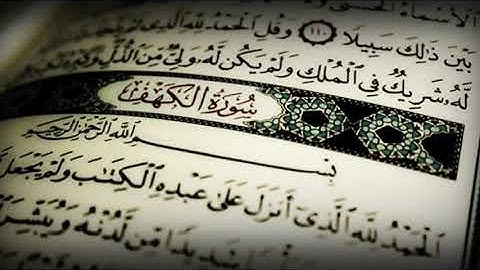 الْأَسْمَاءُ الْحُسْنَىٰ
بَيْنَ ذَٰلِكَ سَبِيلًا ١١٠ وَقُلِ الْحَمْدُ لِلَّهِ الَّذِي
لَّهُ شَرِيكٌ فِي الْمُلْكِ وَلَمْ يَكُن لَّهُ وَلِيٌّ مِّنَ الذُّلِّ وَ
سُورَةُ الْكَهْفِ
بِسْمِ اللَّهِ الرَّحْمَٰنِ الرَّحِيمِ
الْحَمْدُ لِلَّهِ الَّذِي أَنزَلَ عَلَىٰ عَبْدِهِ الْكِتَابَ وَلَمْ يَجْعَل
شَدِيدًا مِّن لَّدُنْهُ وَيُبَشِّرَ